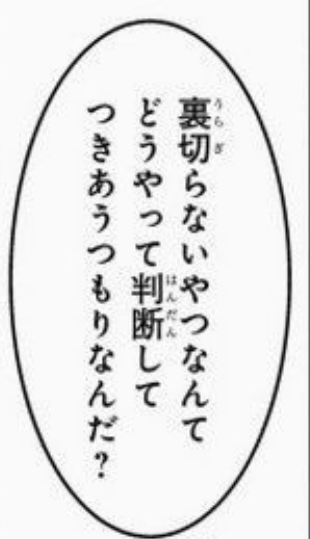 裏切らないやつなんて
どうやって判断して
つきあうつもりなんだ？